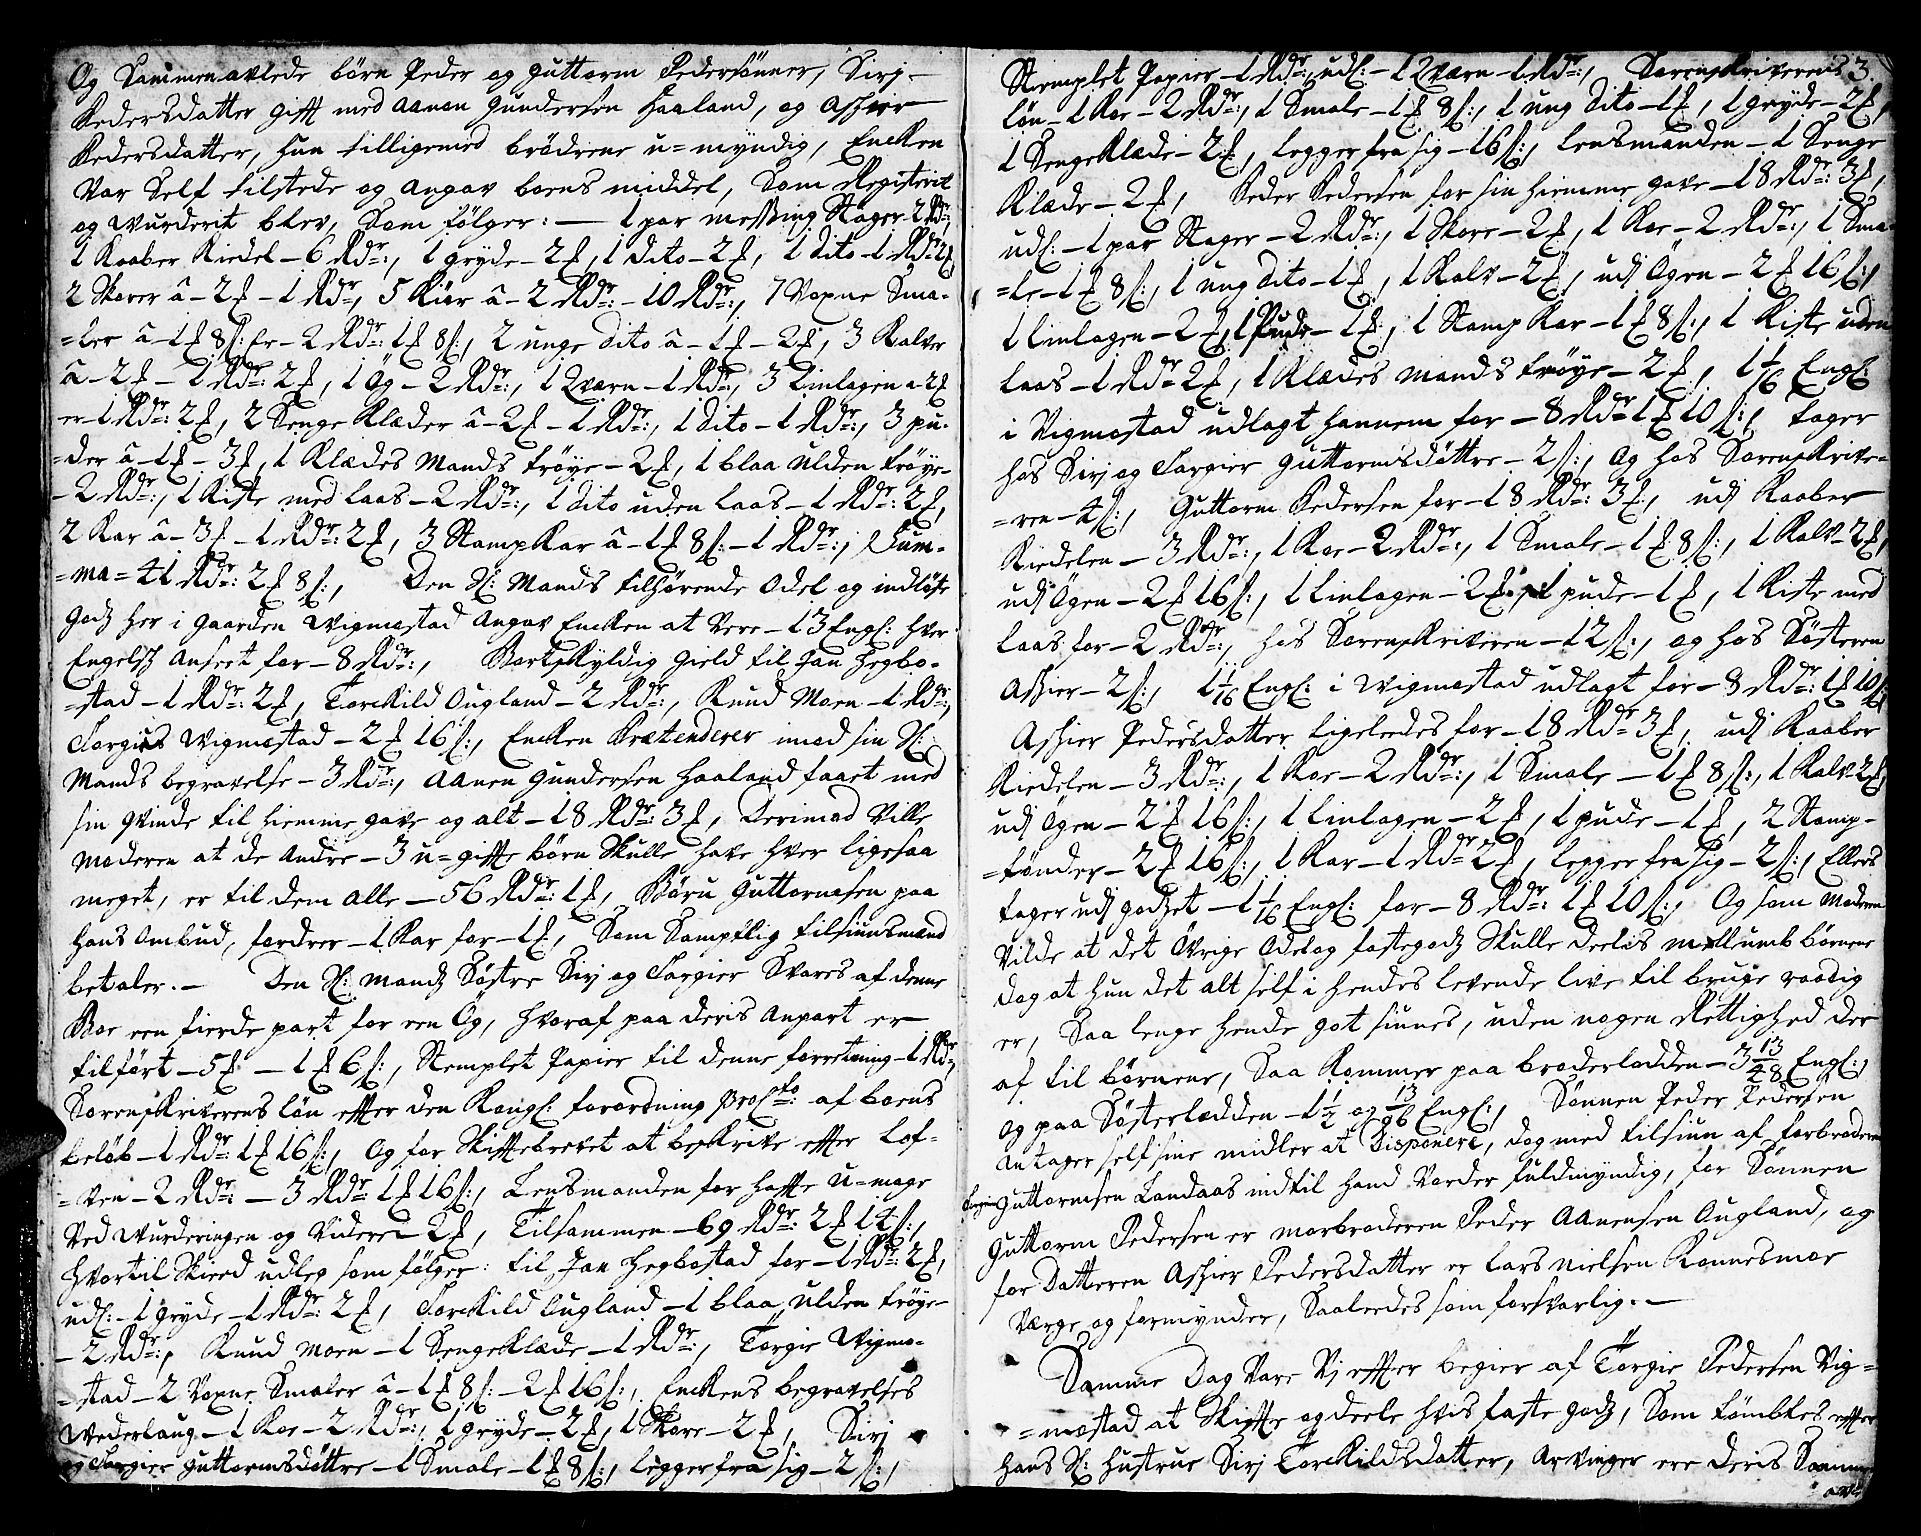 Og Sammenavlede børn Peder og Guttorm Pedersønner, Sirj
Pedersdatter gifft med Aanen Gundersen Haaland, og Assier
Pedersdatter, hun tilligemed brødrene u=myndig, Encken
Var Self tilstede og angav boens middel, Som Registerit
og Wurderit blev, Som følger: — 1 par messing Stager 2 Rdr:,
1 Kaaber Kiedel – 6 Rdr:, 1 gryde – 2 £, 1 dito – 2 £, 1 dito – 1 Rdr: 2 £,
2 Skorer â – 2 £ – 1 Rdr:, 5 Kiör â – 2 Rdr: – 10 Rdr:, 7 Voxne Sma-
=ler â – 1 £ 8 s: er – 2 Rdr: 1 £ 8 s:, 2 unge dito â – 1 £ – 2 £, 3 Kalve
â – 2 £ – 1 Rdr: 2 £, 1 Øg – 2 Rdr:, 1 Qværn – 1 Rdr:, 3 Linlagen a 2 £
er – 1 Rdr: 2 £, 2 Senge Klæder â – 2 £ – 1 Rdr:, 1 dito – 1 Rdr:, 3 pu-
=der â – 1 £ – 3 £, 1 Klædes Mands trøye – 2 £, 1 blaa Ulden trøye
– 2 Rdr:, 1 Kiste med laas – 2 Rdr:, 1 dito uden laas – 1 Rdr: 2 £,
2 Kar â – 3 £ – 1 Rdr: 2 £, 3 StampKar â – 1 £ 8 s: – 1 Rdr:, Sum-
=ma = 41 Rdr: 2 £ 8 s:, Den Sl: Mands tilhørende Odel og indløste
Godz her i gaarden Wigmostad Angav Encken at Vere – 13 Engl: hver
Engelsk Anseet for – 8 Rdr:, Bortskyldig Gield til Jan Hegbo-
=stad – 1 Rdr: 2 £, Torckild Ougland – 2 Rdr:, Knud Moen – 1 Rdr:,
Torgius Wigmostad – 2 £ 16 s:, Encken Prætenderer imod sin Sl:
Mands begravelse – 3 Rdr:, Aanen Gundersen Haaland faaet med
sin qvinde til hiemme gave og alt – 18 Rdr: 3 £, Derimod Ville
Moderen at de Andre – 3 u=giffte børn Skulle have hver ligesaa
meget, er til dem alle – 56 Rdr: 1 £, Børu Guttormsen paa
hans Ombud, fordrer – 1 Kar for – 1 £, Som Samptlig tilsiunsmænd
betaler. – Den Sl: Mandz Søstre Sirj og Torgier Svares af denne
Boe een fierde part for een Øg, hvoraf paa deris Anpart er
tilført – 5 £ – 1 £ 6 s:, Stemplet Papier til denne forretning – 1 Rdr:,
Sorenskriverens løn effter den Kongl: forordning Procto: af boens
beløb – 1 Rdr: 1 £ 16 s:, Og for Skifftebrevet at beskrive effter Lof-
=ven – 2 Rdr: – 3 Rdr: 1 £ 16 s:, Lensmanden for haffte U=mage
Ved Wurderingen og Videre – 2 £, Tilsammen – 69 Rdr: 2 £ 14 s:,
Hvortil Skieed udleg som følger: til Jan Hegbostad for – 1 Rdr: 2 £,
udl: – 1 gryde – 1 Rdr: 2 £, Torckild Ougland – 1 blaa Ulden trøye
– 2 Rdr:, Knud Moen – 1 Senge Klæde – 1 Rdr:, Torgie Wigmo-
=stad – 2 Voxne Smaler â – 1 £ 8 s: – 2 £ 16 s:, Enckens begravelses
Wederlaug – 1 Koe – 2 Rdr:, 1 gryde – 2 £, 1 Skore – 2 £, Sirj
og Torgier Guttormsdøttre – 1 Smale – 1 £ 8 s:, legger fra sig – 2 s:,
Stemplet Papier – 1 Rdr:, udl: – 1 Qværn – 1 Rdr:, Sorenskriverens 3.
løn – 1 Koe – 2 Rdr:, 1 Smale – 1 £ 8 s:, 1 ung dito – 1 £, 1 gryde – 2 £,
1 SengeKlæde – 2 £, legger fra sig – 16 s:, Lensmanden – 1 Senge
Klæde – 2 £, Peder Pedersen for sin hiemme gave – 18 Rdr: 3 £,
udl: – 1 par Stager – 2 Rdr:, 1 Skore – 2 £, 1 Koe – 2 Rdr:, 1 Sma-
=le – 1 £ 8 s:, 1 ung dito – 1 £, 1 Kalv – 2 £, udj Øgen – 2 £ 16 s:,
1 Linlagen – 2 £, 1 Pude – 1 £, 1 StampKar – 1 £ 8 s:, 1 Kiste uden
laas – 1 Rdr: 2 £, 1 Klædes Mands trøye – 2 £, 1 1/16 Engl:
i Vigmostad udlagt hannem for – 8 Rdr: 1 £ 10 s:, tager
hos Sirj og Torgier Guttormsdøttre – 2 s:, og hos Sorenskrive-
=ren – 4 s:, Guttorm Pedersen for – 18 Rdr: 3 £, udj Kaaber
Kiedelen – 3 Rdr:, 1 Koe – 2 Rdr:, 1 Smale – 1 £ 8 s:, 1 Kalv – 2 £,
udj Øgen – 2 £ 16 s:, 1 Linlagen – 2 £, 1 pude – 1 £, 1 Kiste med
laas for – 2 Rdr:, hos Sorenskriveren – 12 s:, og hos Søsteren
Assier – 2 s:, 1 1/16 Engl: i Wigmostad udlagt for – 8 Rdr: 1 £ 10 s:,
Assier Pedersdatter ligeledes for – 18 Rdr: 3 £, udj Kaaber
Kiedelen – 3 Rdr:, 1 Koe – 2 Rdr:, 1 Smale – 1 £ 8 s:, 1 Kalv 2 £,
udj Øgen – 2 £ 16 s:, 1 Linlagen – 2 £, 1 pude – 1 £, 2 Stamp-
=tønder – 2 £ 16 s:, 1 Kar – 1 Rdr: 2 £, legger fra sig – 2 s:, Ellers
tager udj godzet – 1 1/16 Engl: for – 8 Rdr: 1 £ 10 s:, Og som Moderen
Vilde at det Øvrige Odel og fastegodz Skulle deelis mellumb børnene
dog at hun det alt self i hendes levende live til bruge raadig
er, Saa lenge hende got siunes, uden nogen Rettighed der
af til børnene, Saa Kommer paa broderlodden – 3 13/48 Engl:,
og paa Søsterlodden – 1 1/2 og 13/96 Engl:, Sønnen Peder Pedersen
Antager self sine midler at Disponere, dog med tilsiun af farbroderen
Torgie Guttormsen Landaas indtil hand Vorder fuldmyndig, for Sønnen
Guttorm Pedersen er morbroderen Peder Aanensen Ougland, og
for Datteren Assier Pedersdatter er Lars Nielsen Konnesmoe
Værge og formynder, Saaledes som forsvarlig. –
Samme Dag Vare Vj effter begier af Torgie Pedersen Vig=
=mostad at Skiffte og deele hvis faste godz, Som tømbtes effter
hans Sl: Hustrue Sirj Torckildsdatter, Arvinger ere deris Samme
avle